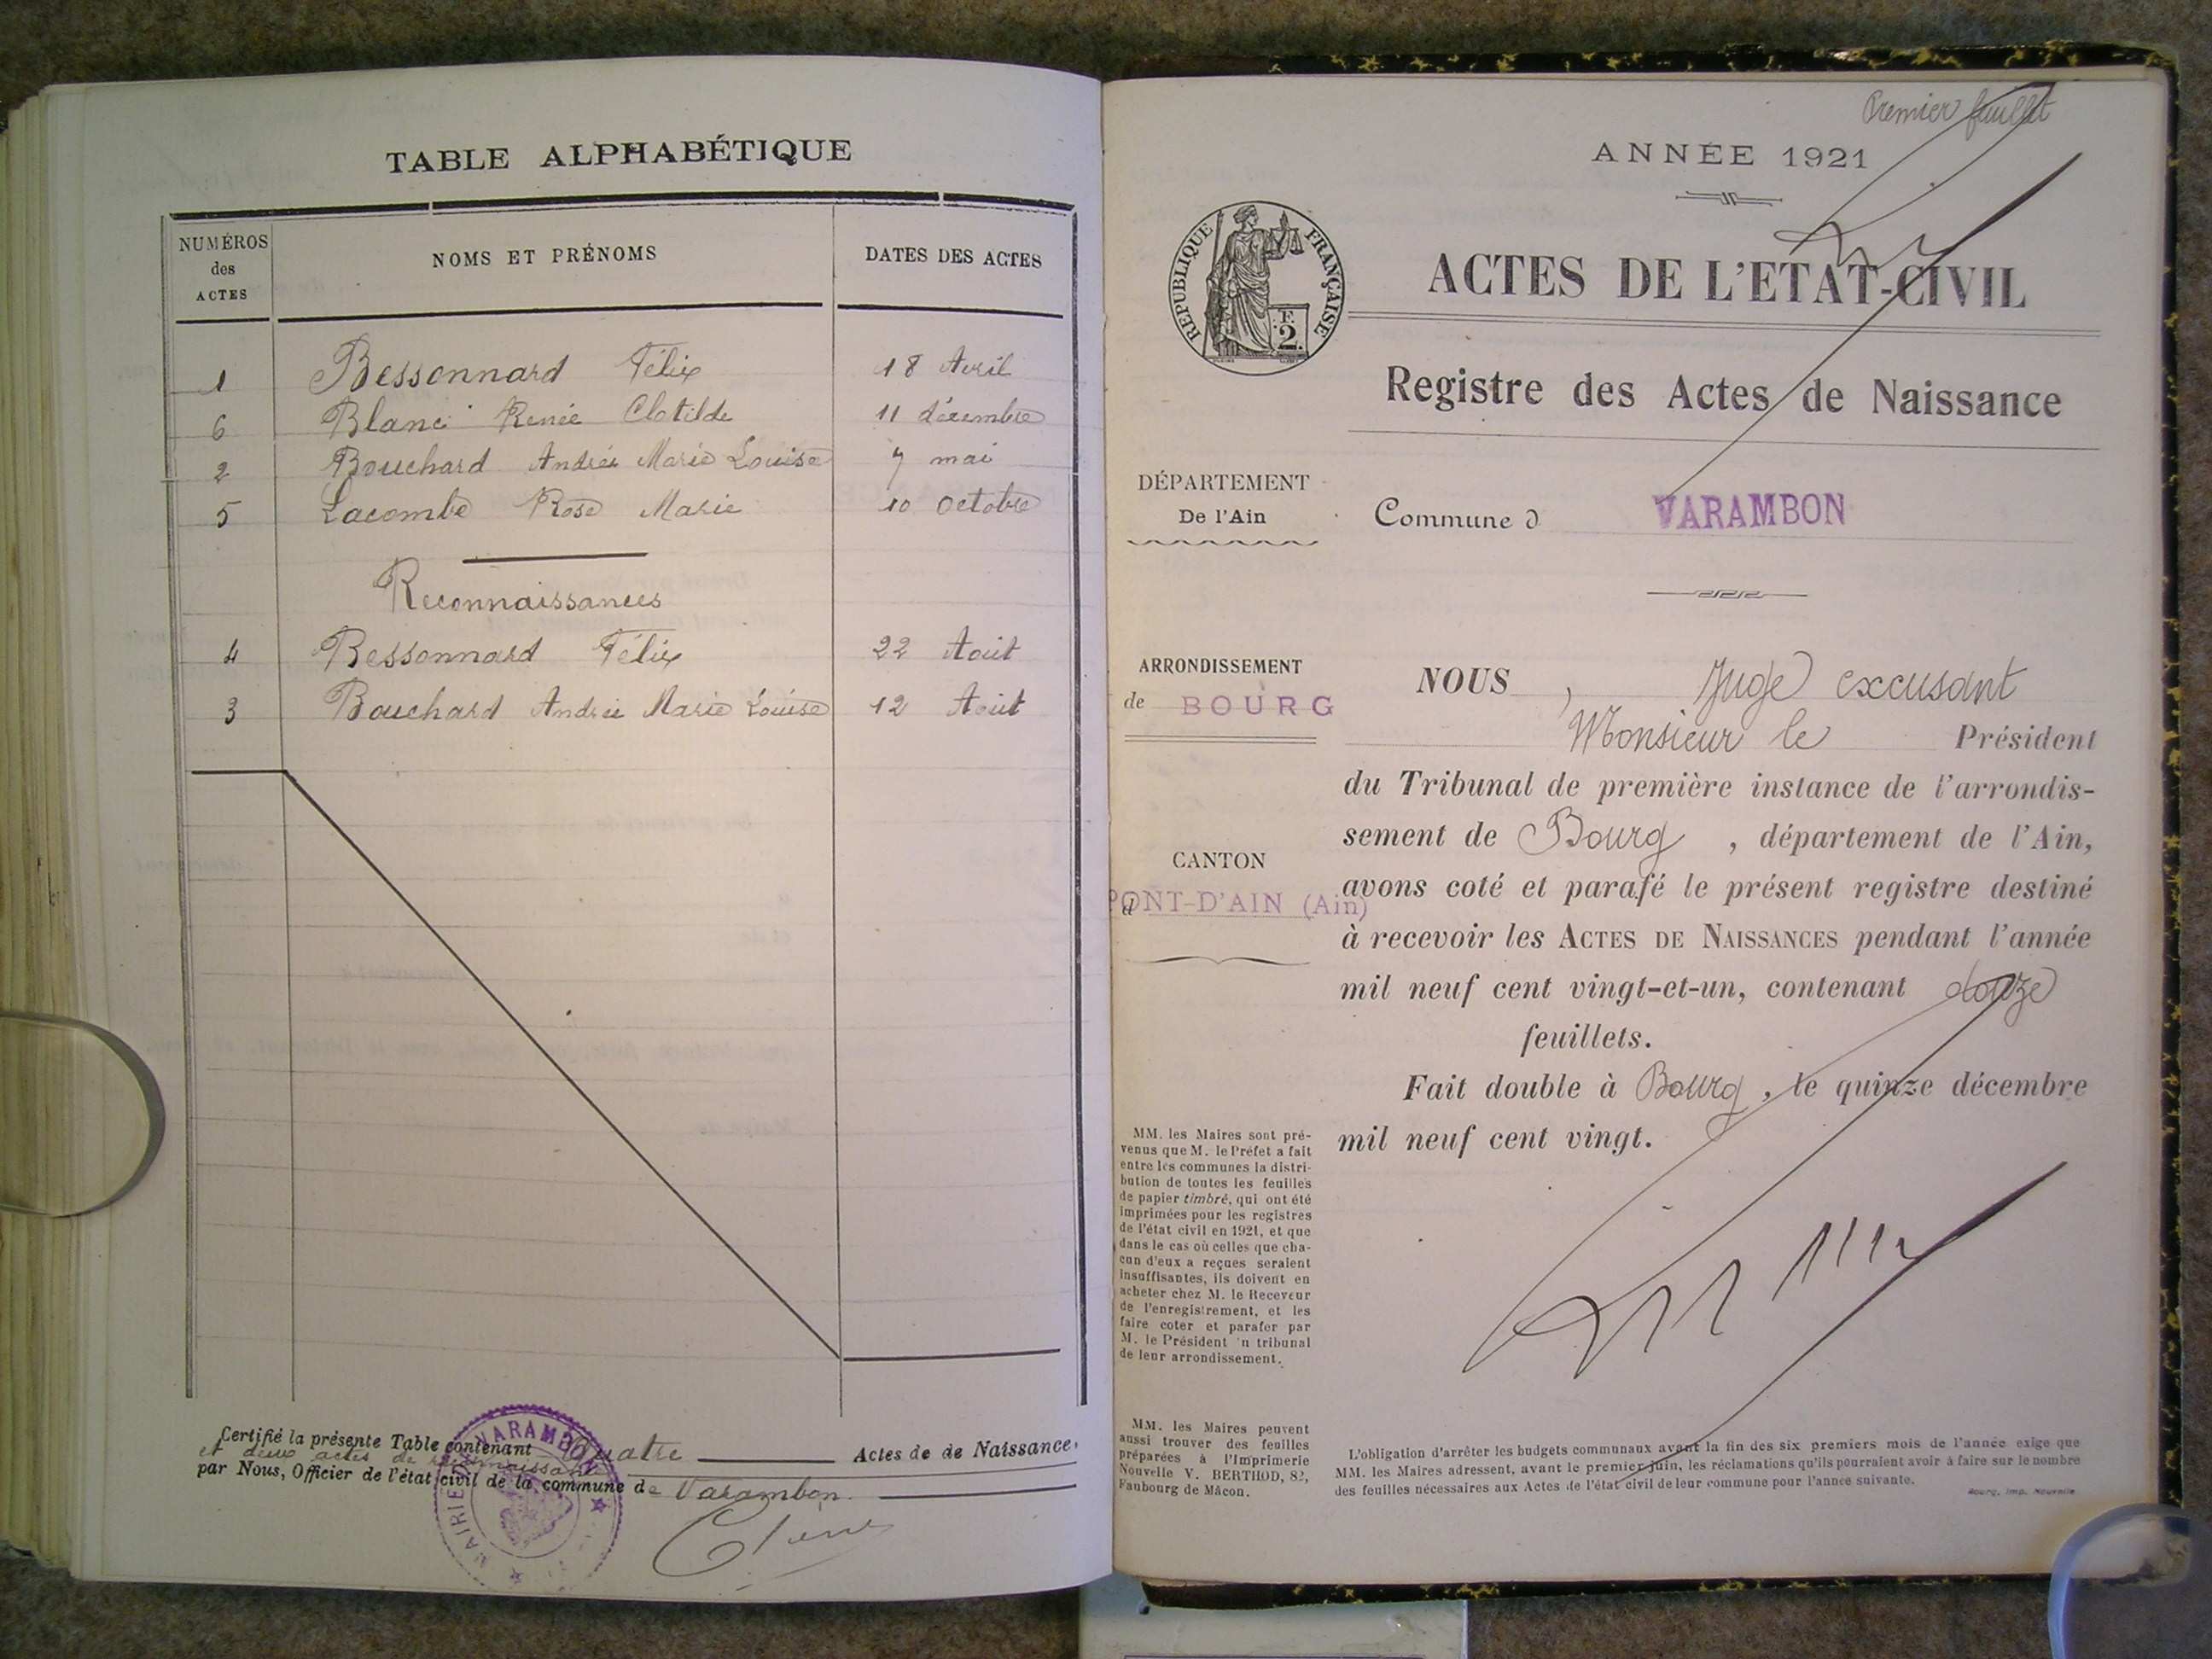 TABLE ALPHABÉTIQUE
NUMÉROS des ACTES NOMS ET PRÉNOMS DATES DES ACTES
1 Bessonnard Félix 18 Avril
6 Blanc Renée Clotilde 11 décembre
2 Bouchard Andrée Marie Louise 7 mai
5 Lacombe Rose Marie 10 Octobre
Reconnaissances
4 Bessonnard Félix 22 Août
3 Bouchard Andrée Marie Louise 12 Août
Certifié la présente Table contenant Quatre Actes de de Naissance
et deux actes de reconnaissance
par Nous, Officier de l'état civil de la commune de Varambon.
MAIRIE DE VARAMBON
Premier feuillet
ANNÉE 1921
RÉPUBLIQUE FRANÇAISE
F. 2.
ACTES DE L'ETAT-CIVIL
Registre des Actes de Naissance
DÉPARTEMENT
De l'Ain
Commune d VARAMBON
ARRONDISSEMENT
de BOURG
CANTON
d PONT-D'AIN (Ain)
NOUS, Juge excusant
Monsieur le Président
du Tribunal de première instance de l'arrondis-
sement de Bourg, département de l'Ain,
avons coté et parafé le présent registre destiné
à recevoir les ACTES DE NAISSANCES pendant l'année
mil neuf cent vingt-et-un, contenant douze
feuillets.
Fait double à Bourg, le quinze décembre
mil neuf cent vingt.
MM. les Maires sont pré-
venus que M. le Préfet a fait
entre les communes la distri-
bution de toutes les feuilles
de papier timbré, qui ont été
imprimées pour les registres
de l'état civil en 1921, et que
dans le cas où celles que cha-
cun d'eux a reçues seraient
insuffisantes, ils doivent en
acheter chez M. le Receveur
de l'enregistrement, et les
faire coter et parafer par
M. le Président 'n tribunal
de leur arrondissement.
MM. les Maires peuvent
aussi trouver des feuilles
préparées à l'Imprimerie
Nouvelle V. BERTHOD, 82,
Faubourg de Mâcon.
L'obligation d'arrêter les budgets communaux avant la fin des six premiers mois de l'année exige que
MM. les Maires adressent, avant le premier juin, les réclamations qu'ils pourraient avoir à faire sur le nombre
des feuilles nécessaires aux Actes de l'état civil de leur commune pour l'année suivante.
Bourg, Imp. Nouvelle